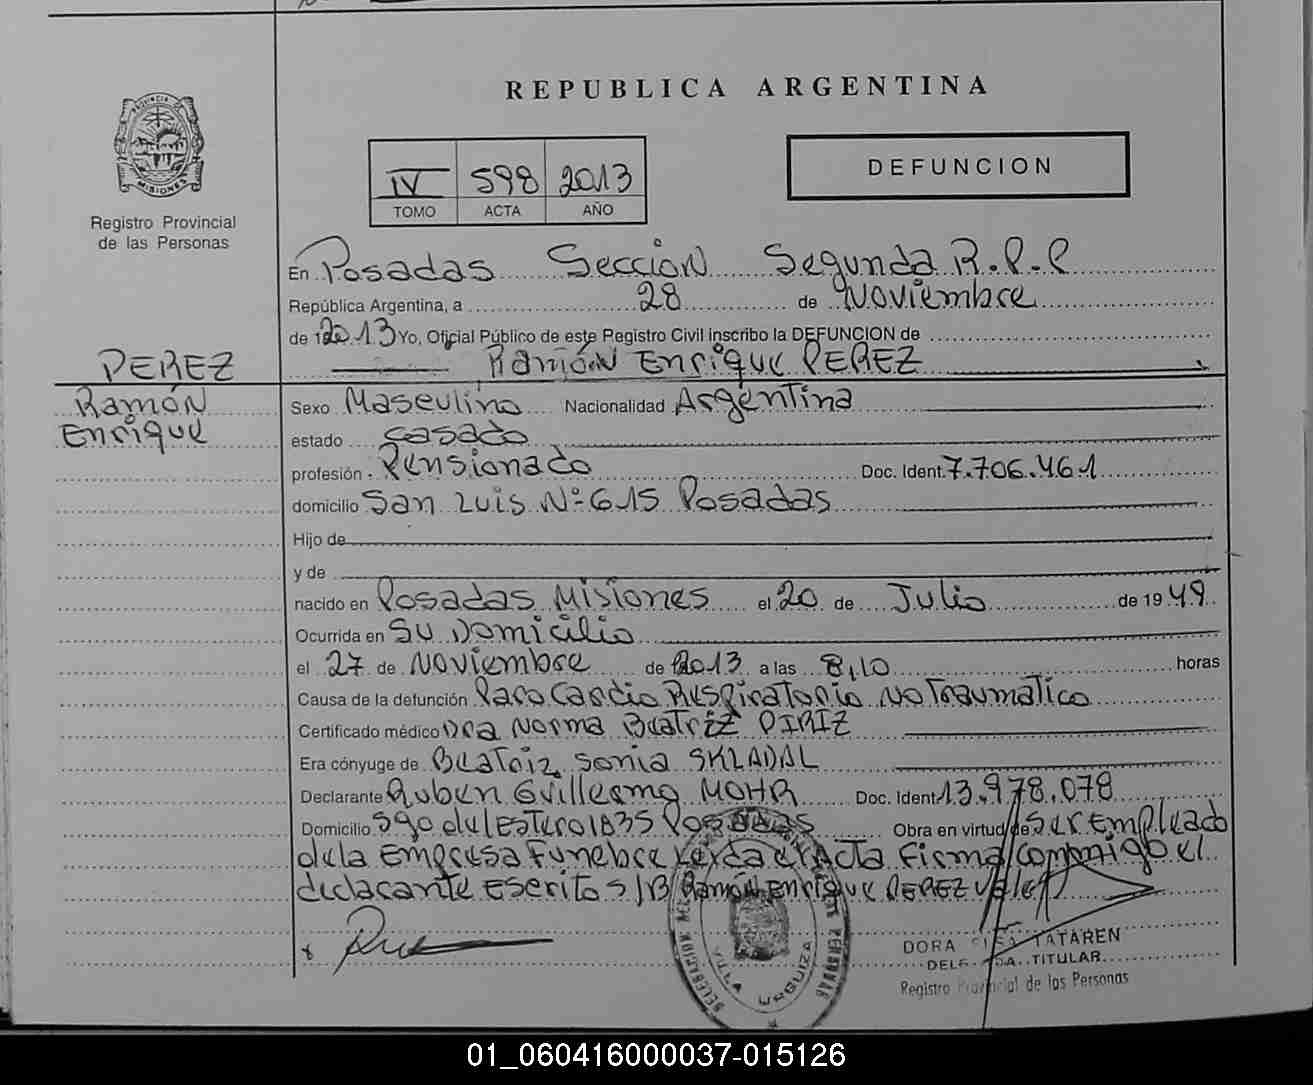 REPUBLICA ARGENTINA
PROVINCIA DE
MISIONES
Registro Provincial
de las Personas
IV 598 2013
TOMO ACTA AÑO
DEFUNCION
En Posadas Sección Segunda R.P.P
República Argentina, a 28 de Noviembre
de 2013 Yo, Oficial Público de este Registro Civil inscribo la DEFUNCION de
Ramón Enrique PEREZ
PEREZ
Ramón
Enrique
Sexo Masculino Nacionalidad Argentina
estado casado
profesión Pensionado Doc. Ident. 7.706.461
domicilio San Luis Nº 615 Posadas
Hijo de
y de
nacido en Posadas Misiones el 20 de Julio de 1949
Ocurrida en Su Domicilio
el 27 de Noviembre de 2013 a las 8,10 horas
Causa de la defunción Paro Cardio Respiratorio No Traumatico
Certificado médico Dra Norma Beatriz PIRIZ
Era cónyuge de Beatriz Sonia SKLADAL
Declarante Ruben Guillermo MOHR Doc. Ident 13.978.078
Domicilio Sgo del Estero 1835 Posadas Obra en virtud de Ser Empleado
de la Empresa Funebre Leida el Acta Firma Conmigo el
declarante Escrito S/B Ramón Enrique PEREZ Vale
DORA TATAREN
DELEGADA TITULAR
Registro Provincial de las Personas
VILLA URQUIZA
01_060416000037-015126